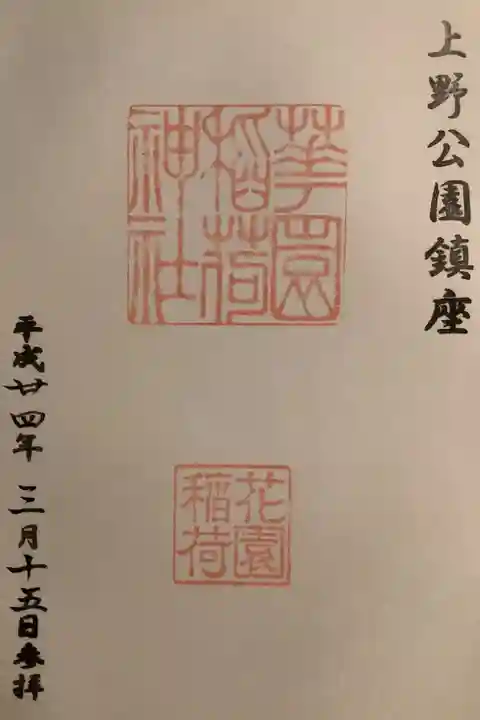 上野公園鎮座
華園
稲荷
神社
花園
稲荷
平成廿四年 三月十五日参拝